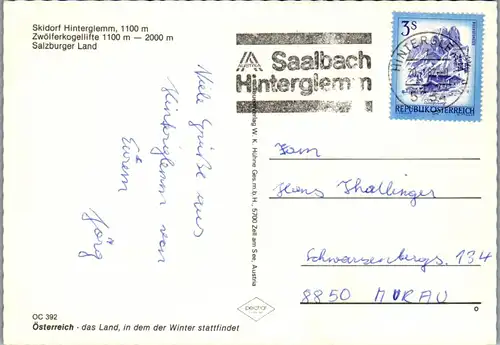 Skidorf Hinterglemm, 1100 m
Zwölferkogellifte 1100 m — 2000 m
Salzburger Land
Viele Grüße aus
Hinterglemm von
Eurem
Jörg
OC 392
Österreich - das Land, in dem der Winter stattfindet
W. K. Hühne Ges.m.b.H., 5700 Zell am See, Austria
AUSTRIA
Saalbach
Hinterglemm
HINTERGLEMM
3S
REPUBLIK ÖSTERREICH
Fam
Hans Thallinger
Schwarzenbergs. 134
8850 MURAU